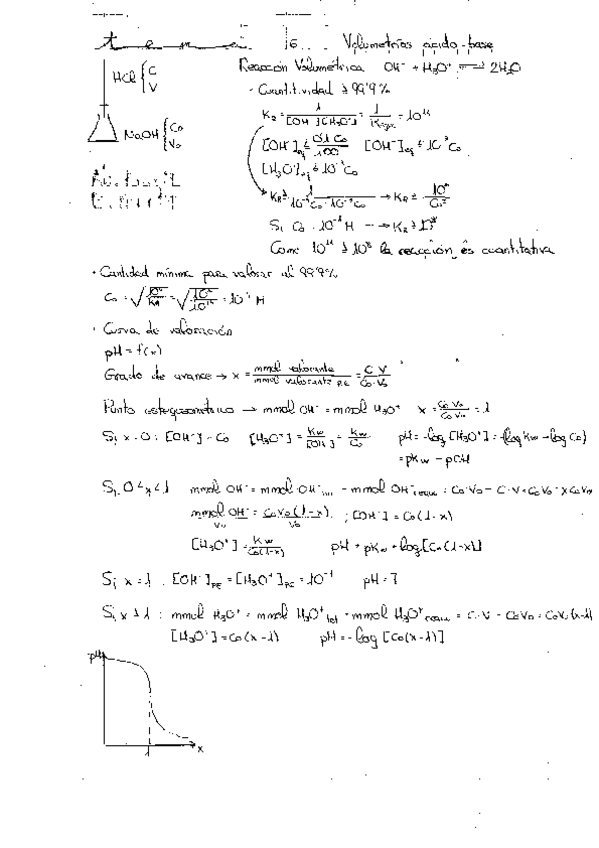 tema 6 Volumetrías ácido-base
HCl { C V
Reacción Volumétrica OH⁻ + H₃O⁺ ⇌ 2H₂O
NaOH { Co Vo
K_R = 1/([OH⁻][H₃O⁺]) = 1/K_w = 10¹⁴
[OH⁻]eq ≤ 0'1 Co/100 [OH⁻]eq ≤ 10⁻³Co
[H₃O⁺]eq ≤ 10⁻³Co
K_R ≥ 1/(10⁻³Co · 10⁻³Co) → K_R ≥ 10⁶/Co²
Si Co = 10⁻¹ M → K_R ≥ 10⁸
Como 10¹⁴ ≥ 10⁸ la reacción es cuantitativa
· Cantidad mínima para valorar al 99'9%
Co = √(10⁶/K_R) = √(10⁶/10¹⁴) = 10⁻⁴ M
· Curva de valoración
pH = f(x)
Grado de avance → x = mmol valorante/mmol valorante P.E = C V/Co·Vo
Punto estequiométrico → mmol OH⁻ = mmol H₃O⁺ x = CoVo/CoVo = 1
Si x = 0 : [OH⁻] = Co [H₃O⁺] = Kw/[OH⁻] = Kw/Co pH = -log [H₃O⁺] = -(log Kw - log Co)
= pKw - pCo
Si 0 < x < 1 mmol OH⁻ = mmol OH⁻ - mmol OH⁻ : Co·Vo - C·V = CoVo - xCoVo
mmol OH⁻/Vo = CoVo(1-x)/Vo ; [OH⁻] = Co(1-x)
[H₃O⁺] = Kw/Co(1-x) pH = pKw + log[Co(1-x)]
Si x = 1 . [OH⁻]PE = [H₃O⁺]PE = 10⁻⁷ pH = 7
Si x > 1 : mmol H₃O⁺ = mmol H₃O⁺ tot - mmol H₃O⁺ = C·V - CoVo = CoVo(x-1)
[H₃O⁺] = Co(x-1) pH = -log [Co(x-1)]
pH
x
1